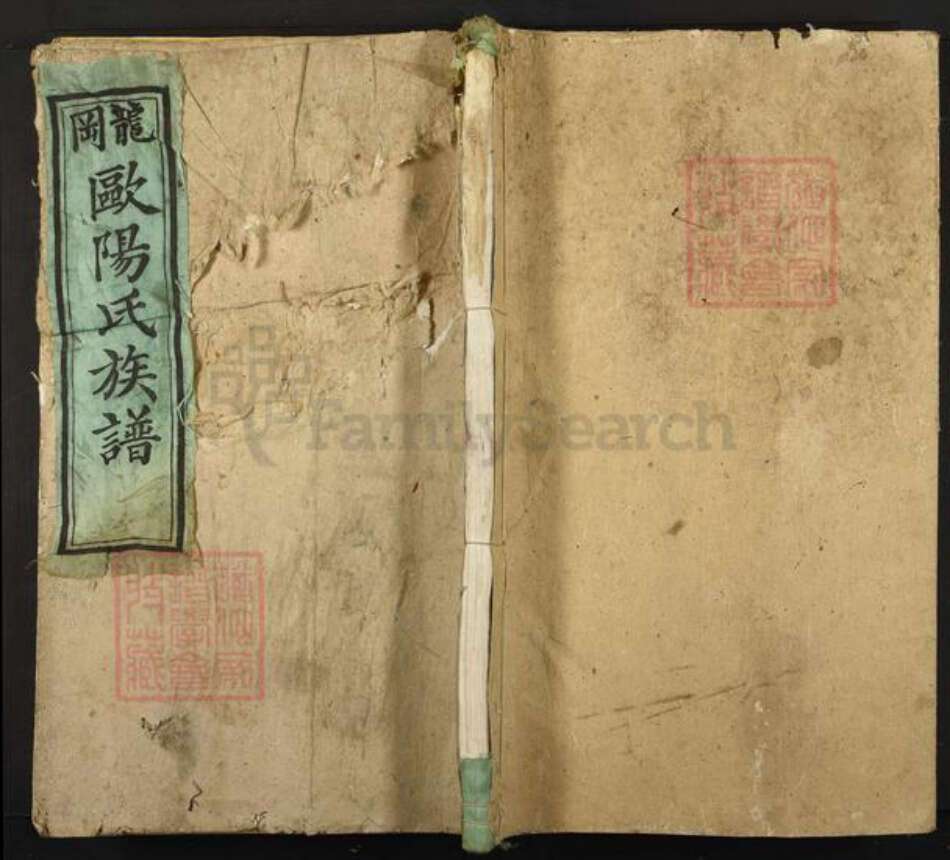 龍岡
歐陽氏族譜
FamilySearch